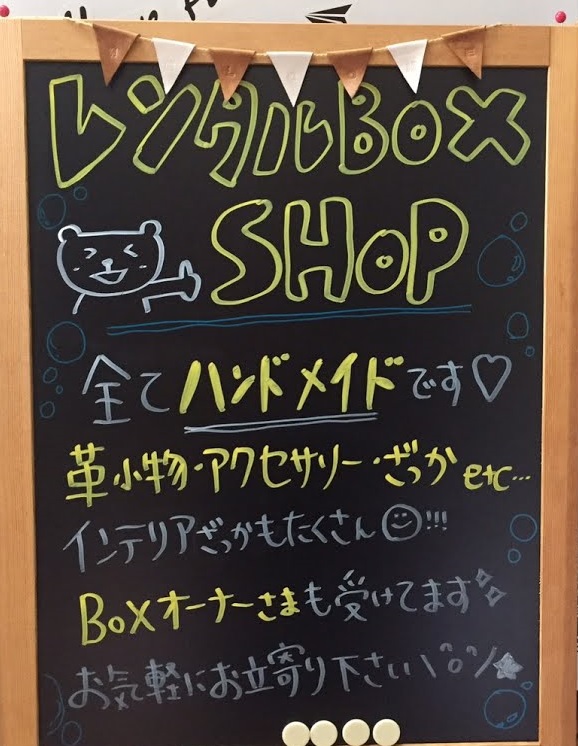 レンタルBOX
SHOP
全てハンドメイドです♡
革小物・アクセサリー・ざっか etc…
インテリアざっかもたくさん☺!!!
BOXオーナーさまも受けてます✧✧
お気軽にお立寄り下さい\^o^/★